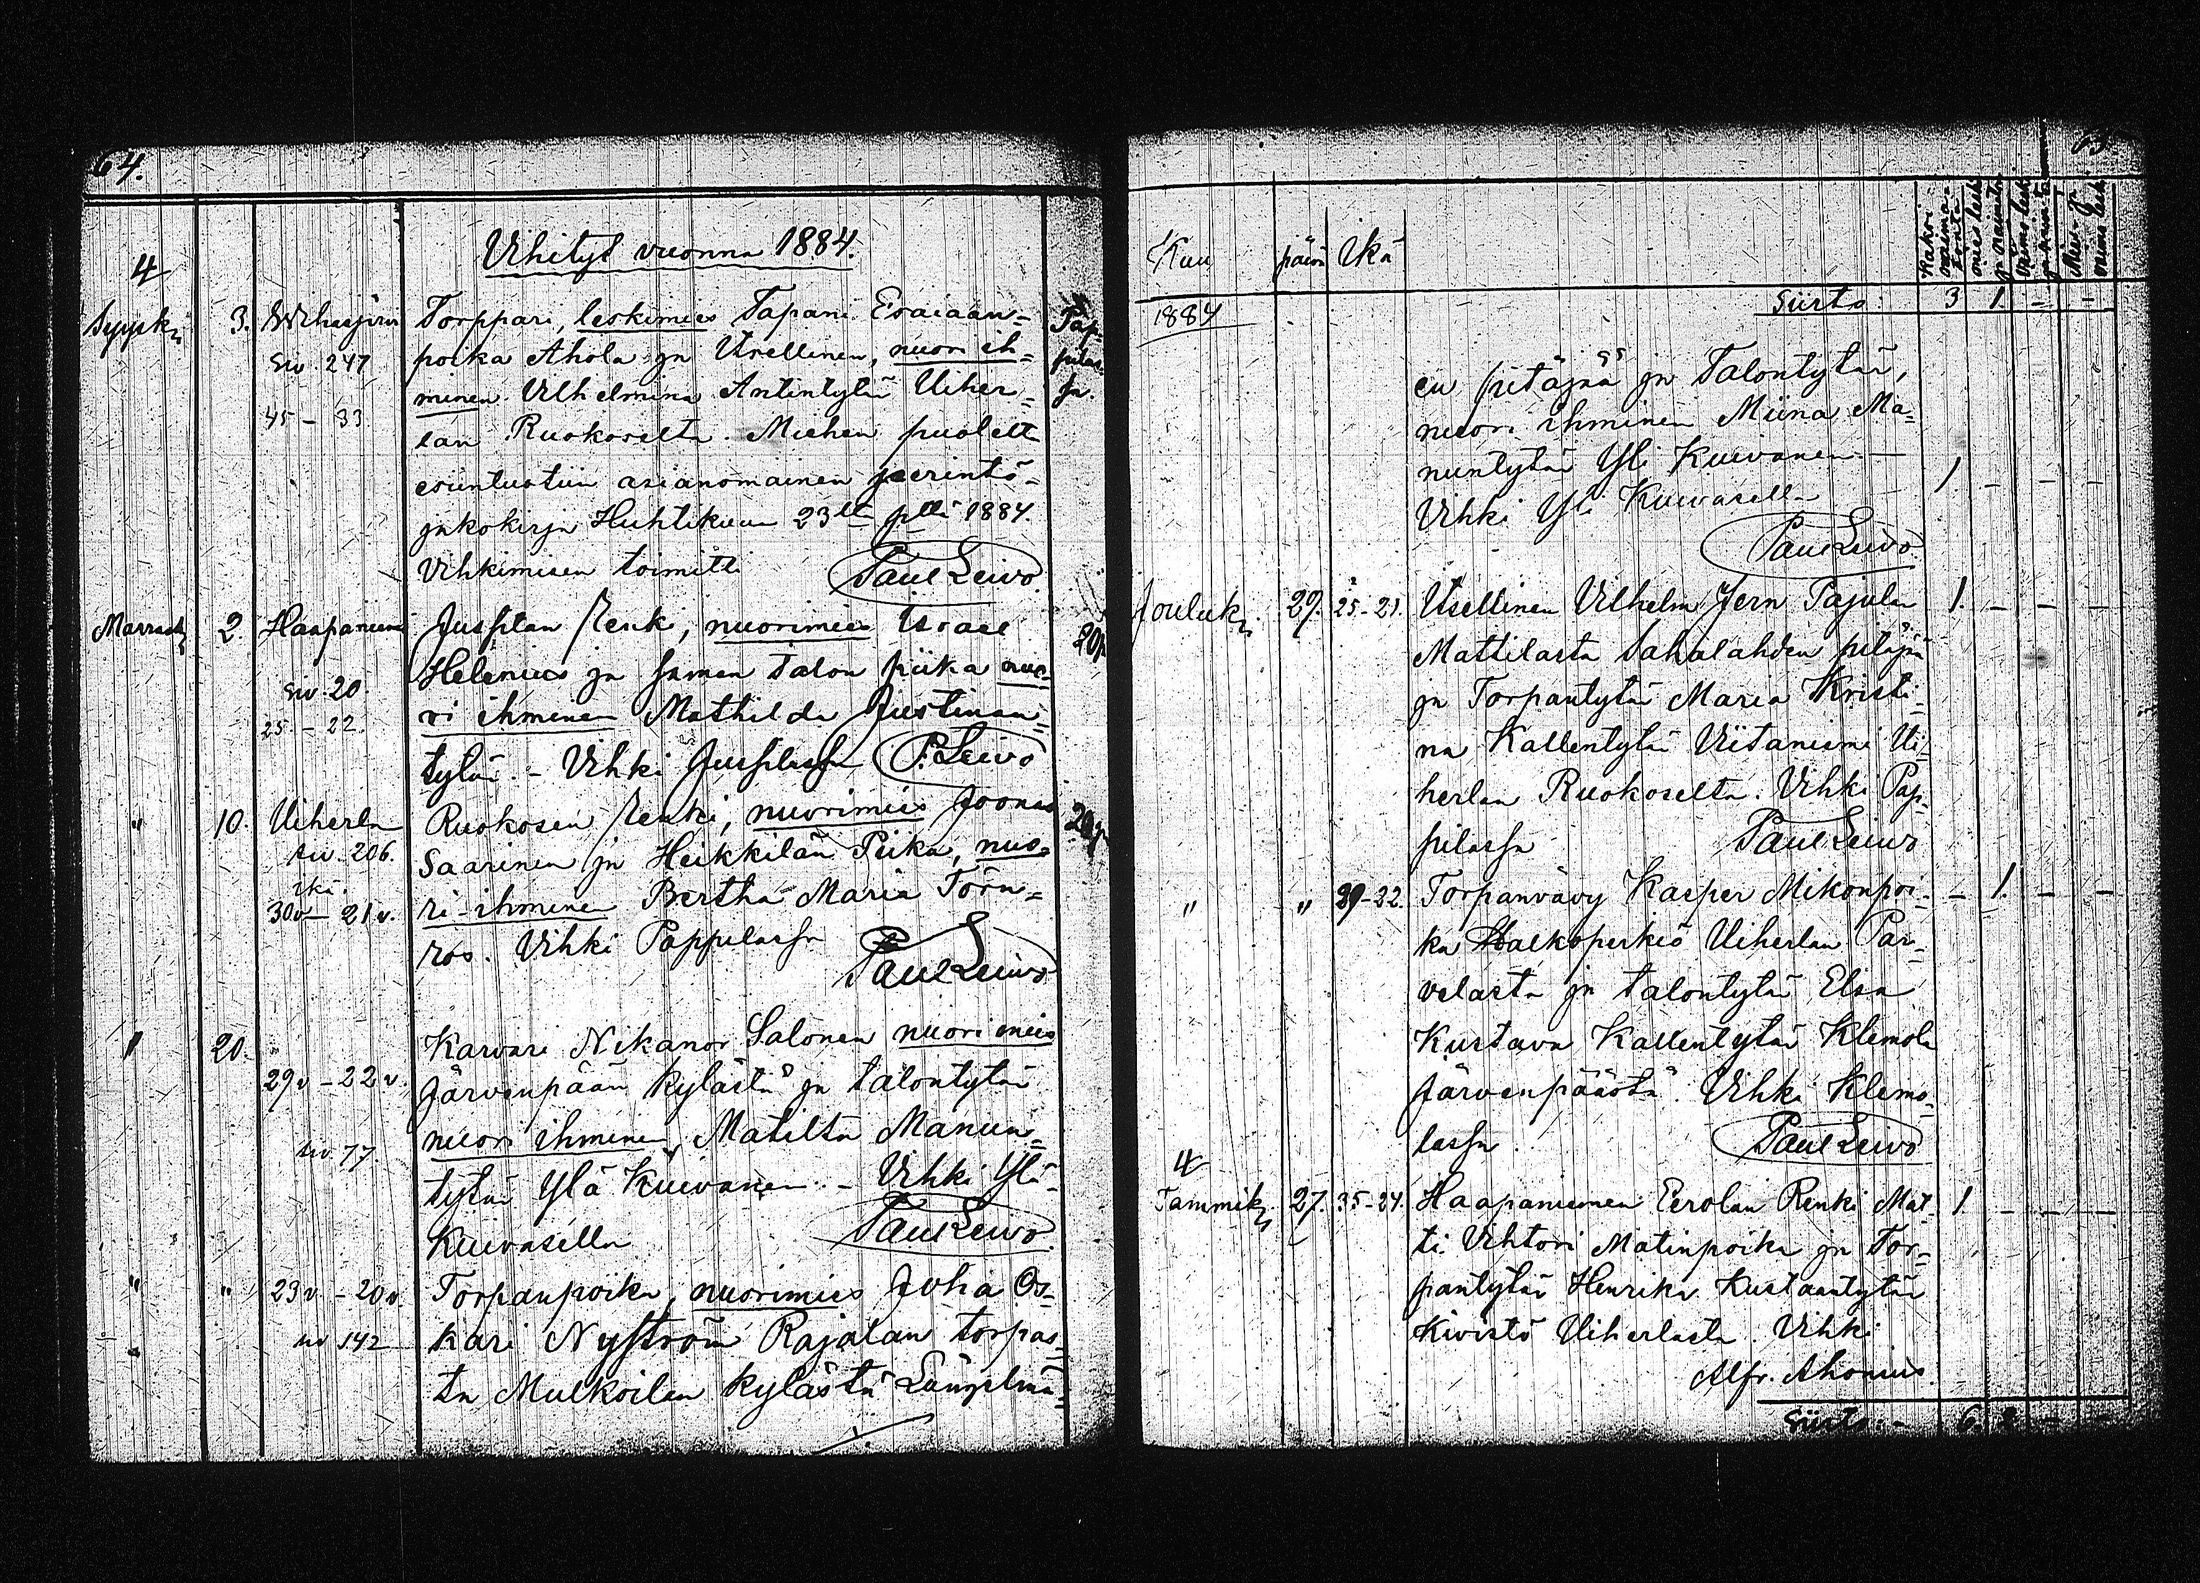 64.
Vihityt vuonna 1884.
4
Syysk. 3. Wihasjärvi
siv. 247
45 – 33
Torppari, leskimies Tapani Esaiaan=
poika Ahola ja Itsellinen, nuori ih=
minen Vilhelmina Antintytär Uiher=
lan Ruokoselta. Miehen puolelta
esiintuotiin asianomainen perintö=
jakokirja Huhtikuun 23lta p:ltä 1884.
Vihkimisen toimitti Paul Leivo
Pap=
pilas=
sa.
Marrask. 2. Haapaniemi
siv. 20.
25. – 22.
Jussilan Renki, nuorimies Israel
Helenius ja saman talon piika nuo=
ri ihminen Mathilda Justinan=
tytär. – Vihki Jussilassa P. Leivo
20p
" 10. Uiherla
siv. 206.
ikä.
30v – 21v.
Ruokosen Renki, nuorimies Joonas
Saarinen ja Heikkilän Piika, nuo=
ri-ihminen Bertha Maria Törn=
ros. Vihki Pappilassa
Paul Leivo
20p
" 20. "
29v – 22v.
siv. 77.
Karvari Nikanor Salonen nuorimies
Järvenpään kylästä ja talontytär
nuori ihminen, Matilta Manun=
tytär Ylä Kuivanen. – Vihki Ylä=
Kuivasella Paul Leivo.
" " 23v – 20v.
siv 142
Torpanpoika, nuorimies Juha Os=
kari Nyström Rajalan torpas=
ta Mulkoilan kylästä Längelmä=
65
Kuu päivä Ikä
Kaksi
naima-
tonta
mies leski
ja naimaton
vaimo leski
Mies- ja
vaimo leski
1884
Siirto: 3 1. – –
en pitäjää ja Talontytär,
nuori ihminen Miina Ma=
nuntytär Yli Kuivanen. –
Vihki Yli Kuivasella 1 – – –
Paul Leivo
Jouluk. 29. 25-21. Itsellinen Vilhelm Jern Pajula 1. – – –
Mattilasta Sahalahden pitäjää
ja Torpantytär Maria Kristi=
na Kallentytär Viitaniemi Ui=
herlan Ruokoselta. Vihki Pap=
pilassa Paul Leivo
" " 29-22. Torpanvävy Kasper Mikonpoi= – 1. – –
ka Halkoperkiö Uiherlan Par=
velasta ja talontytär Elsa
Kustava Kallentytär Klemola
Järvenpäästä. Vihki Klemo=
lassa. Paul Leivo
4
Tammik. 27. 35-24. Haapaniemen Eerolan Renki Mat= 1. – – –
ti Vihtori Matinpoika ja Tor=
pantytär Henrika Kustaantytär
Kivistö Uiherlasta. Vihki
Alfr. Ahonius.
Siirto: – 6. 2 – –